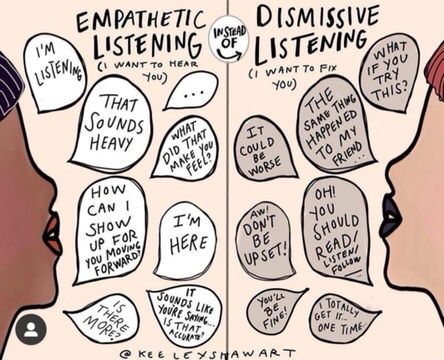 EMPATHETIC
LISTENING
(I WANT TO HEAR
YOU)
INSTEAD
OF
DISMISSIVE
LISTENING
(I WANT TO FIX
YOU)
I'M
LISTENING
THAT
SOUNDS
HEAVY
...
WHAT
DID THAT
MAKE YOU
FEEL?
HOW
CAN I
SHOW
UP FOR
YOU MOVING
FORWARD?
I'M
HERE
IS
THERE
MORE?
IT
SOUNDS LIKE
YOU'RE SAYING...
IS THAT
ACCURATE?
WHAT
IF YOU
TRY
THIS?
THE
SAME THING
HAPPENED
TO MY
FRIEND...
IT
COULD
BE
WORSE
AW!
DON'T
BE
UPSET!
OH!
YOU
SHOULD
READ/
LISTEN/
FOLLOW
YOU'LL
BE
FINE!
I TOTALLY
GET IT...
ONE TIME...
@KEELEYSHAWART